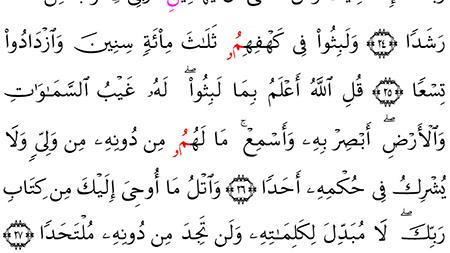 رَشَدًا ﴿٢٤﴾ وَلَبِثُوا۟ فِى كَهْفِهِمُۥ ثَلَـٰثَ مِا۟ئَةٍ سِنِينَ وَٱزْدَادُوا۟
تِسْعًا ﴿٢٥﴾ قُلِ ٱللَّهُ أَعْلَمُ بِمَا لَبِثُوا۟ۖ لَهُۥ غَيْبُ ٱلسَّمَـٰوَٰتِ
وَٱلْأَرْضِۖ أَبْصِرْ بِهِۦ وَأَسْمِعْۚ مَا لَهُمُۥ مِن دُونِهِۦ مِن وَلِىٍّ وَلَا
يُشْرِكُ فِى حُكْمِهِۦ أَحَدًا ﴿٢٦﴾ وَٱتْلُ مَا أُوحِىَ إِلَيْكَ مِن كِتَابِ
رَبِّكَۖ لَا مُبَدِّلَ لِكَلِمَـٰتِهِۦ وَلَن تَجِدَ مِن دُونِهِۦ مُلْتَحَدًا ﴿٢٧﴾